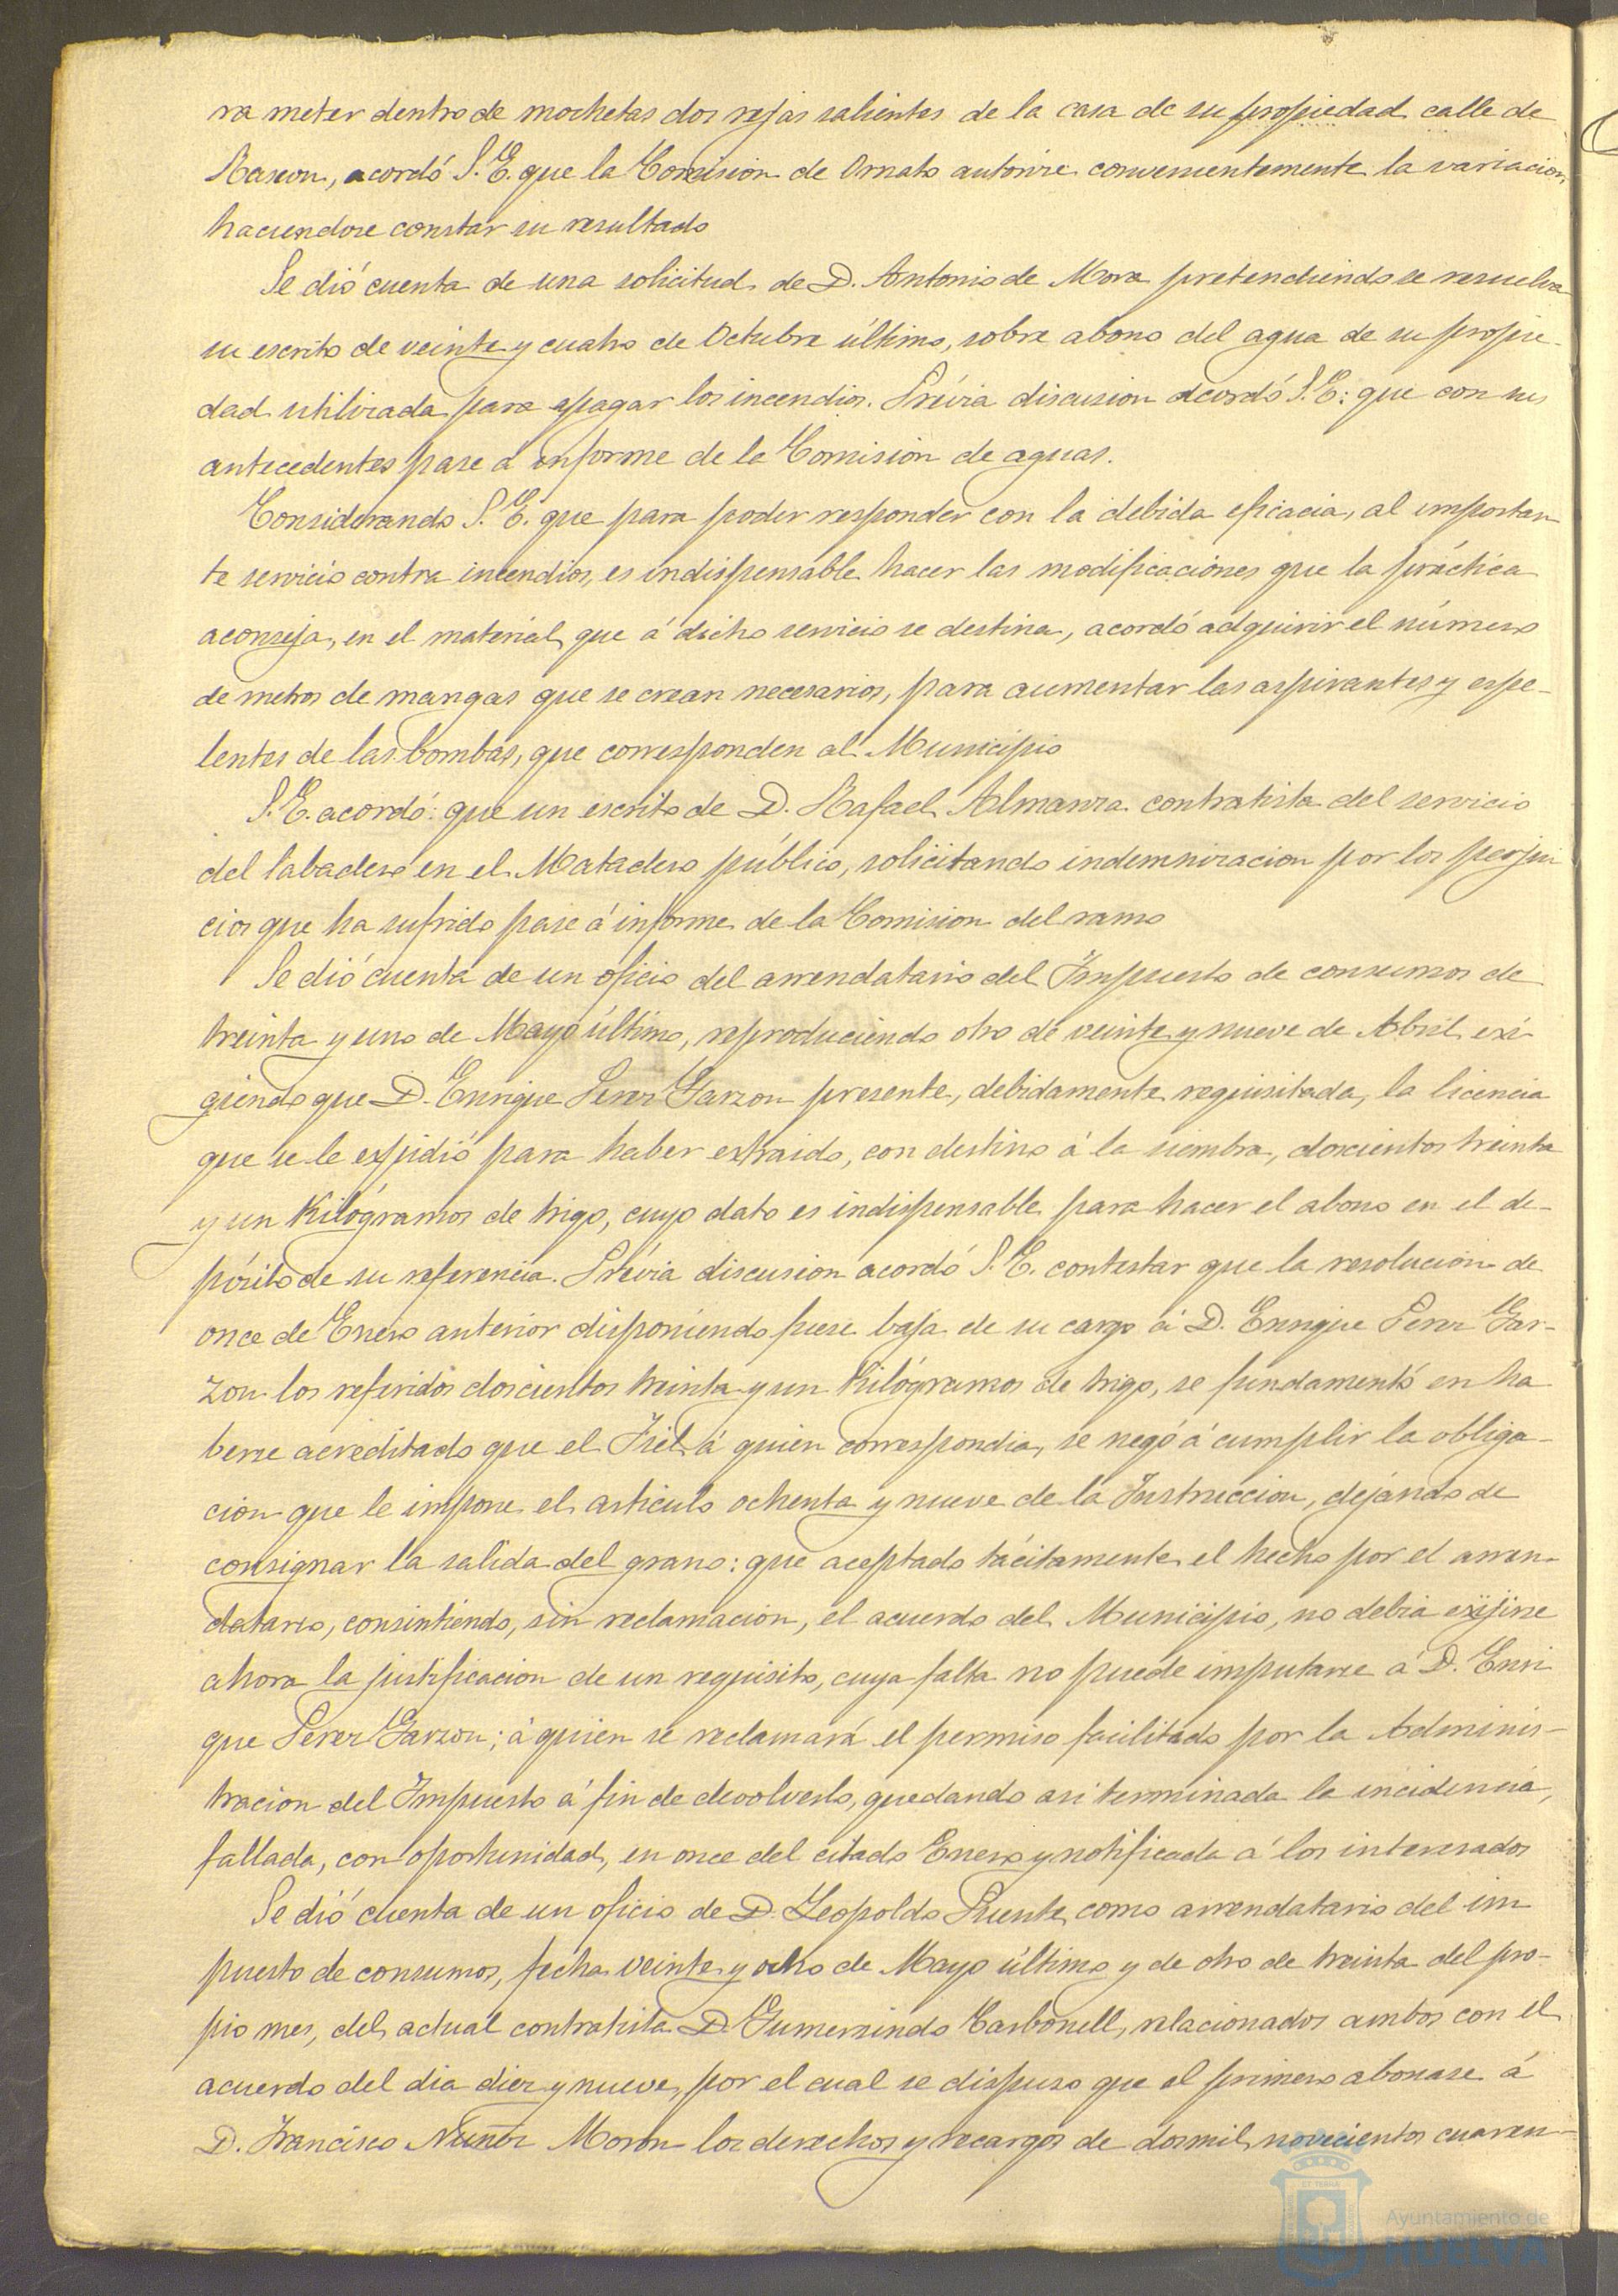 ra meter dentro de mochetas dos rejas salientes de la casa de su propiedad calle de
Rascon, acordó S.E. que la Comision de Ornato autorize convenientemente la variacion,
haciendose constar su resultado
Se dió cuenta de una solicitud de D. Antonio de Mora pretendiendo se resuelva
su escrito de veinte y cuatro de Octubre último, sobre abono del agua de su propie-
dad utilizada para apagar los incendios. Prévia discusion acordó S.E: que con sus
antecedentes pase á informe de la Comision de aguas.
Considerando S.E. que para poder responder con la debida eficacia, al importan-
te servicio contra incendios, es indispensable hacer las modificaciones que la práctica
aconseja, en el material que á dicho servicio se destina, acordó adquirir el número
de metros de mangas que se crean necesarios, para aumentar las aspirantes y espe-
lentes de las bombas, que corresponden al Municipio
S.E. acordó: que un escrito de D. Rafael Almanza contratista del servicio
del labadero en el Matadero público, solicitando indemnizacion por los perjui
cios que ha sufrido pase á informe de la Comision del ramo
Se dió cuenta de un oficio del arrendatario del Impuesto de consumos de
treinta y uno de Mayo último, reproduciendo otro de veinte y nueve de Abril exi-
giendo que D. Enrique Perez Garzon presente, debidamente requisitada, la licencia
que se le expidió para haber extraido, con destino á la siembra, doscientos treinta
y un Kilógramos de trigo, cuyo dato es indispensable para hacer el abono en el de-
pósito de su referencia. Prévia discusion acordó S.E. contestar que la resolucion de
once de Enero anterior disponiendo fuese baja de su cargo á D. Enrique Perez Gar-
zon los referidos doscientos treinta y un Kilógramos de trigo, se fundamentó en ha
berse acreditado que el Fiel á quien correspondia, se negó á cumplir la obliga-
cion que le impone el articulo ochenta y nueve de la Instruccion, dejando de
consignar la salida del grano: que aceptado tácitamente el hecho por el arren-
datario, consintiendo, sin reclamacion, el acuerdo del Municipio, no debia exijirse
ahora la justificacion de un requisito, cuya falta no puede imputarse á D. Enri
que Perez Garzon; á quien se reclamará el permiso facilitado por la Adminis-
tracion del Impuesto á fin de devolverlo, quedando asi terminada la incidencia,
fallada, con oportunidad, en once del citado Enero y notificada á los interesados
Se dió cuenta de un oficio de D. Leopoldo Puente, como arrendatario del im
puesto de consumos, fecha veinte y ocho de Mayo último y de otro de treinta del pro-
pio mes, del actual contratista D. Gumersindo Carbonell, relacionados ambos con el
acuerdo del dia diez y nueve, por el cual se dispuso que el primero abonase á
D. Francisco Nuñez Moron los derechos y recargos de dos mil novecientos cuaren-
Ayuntamiento de
HUELVA